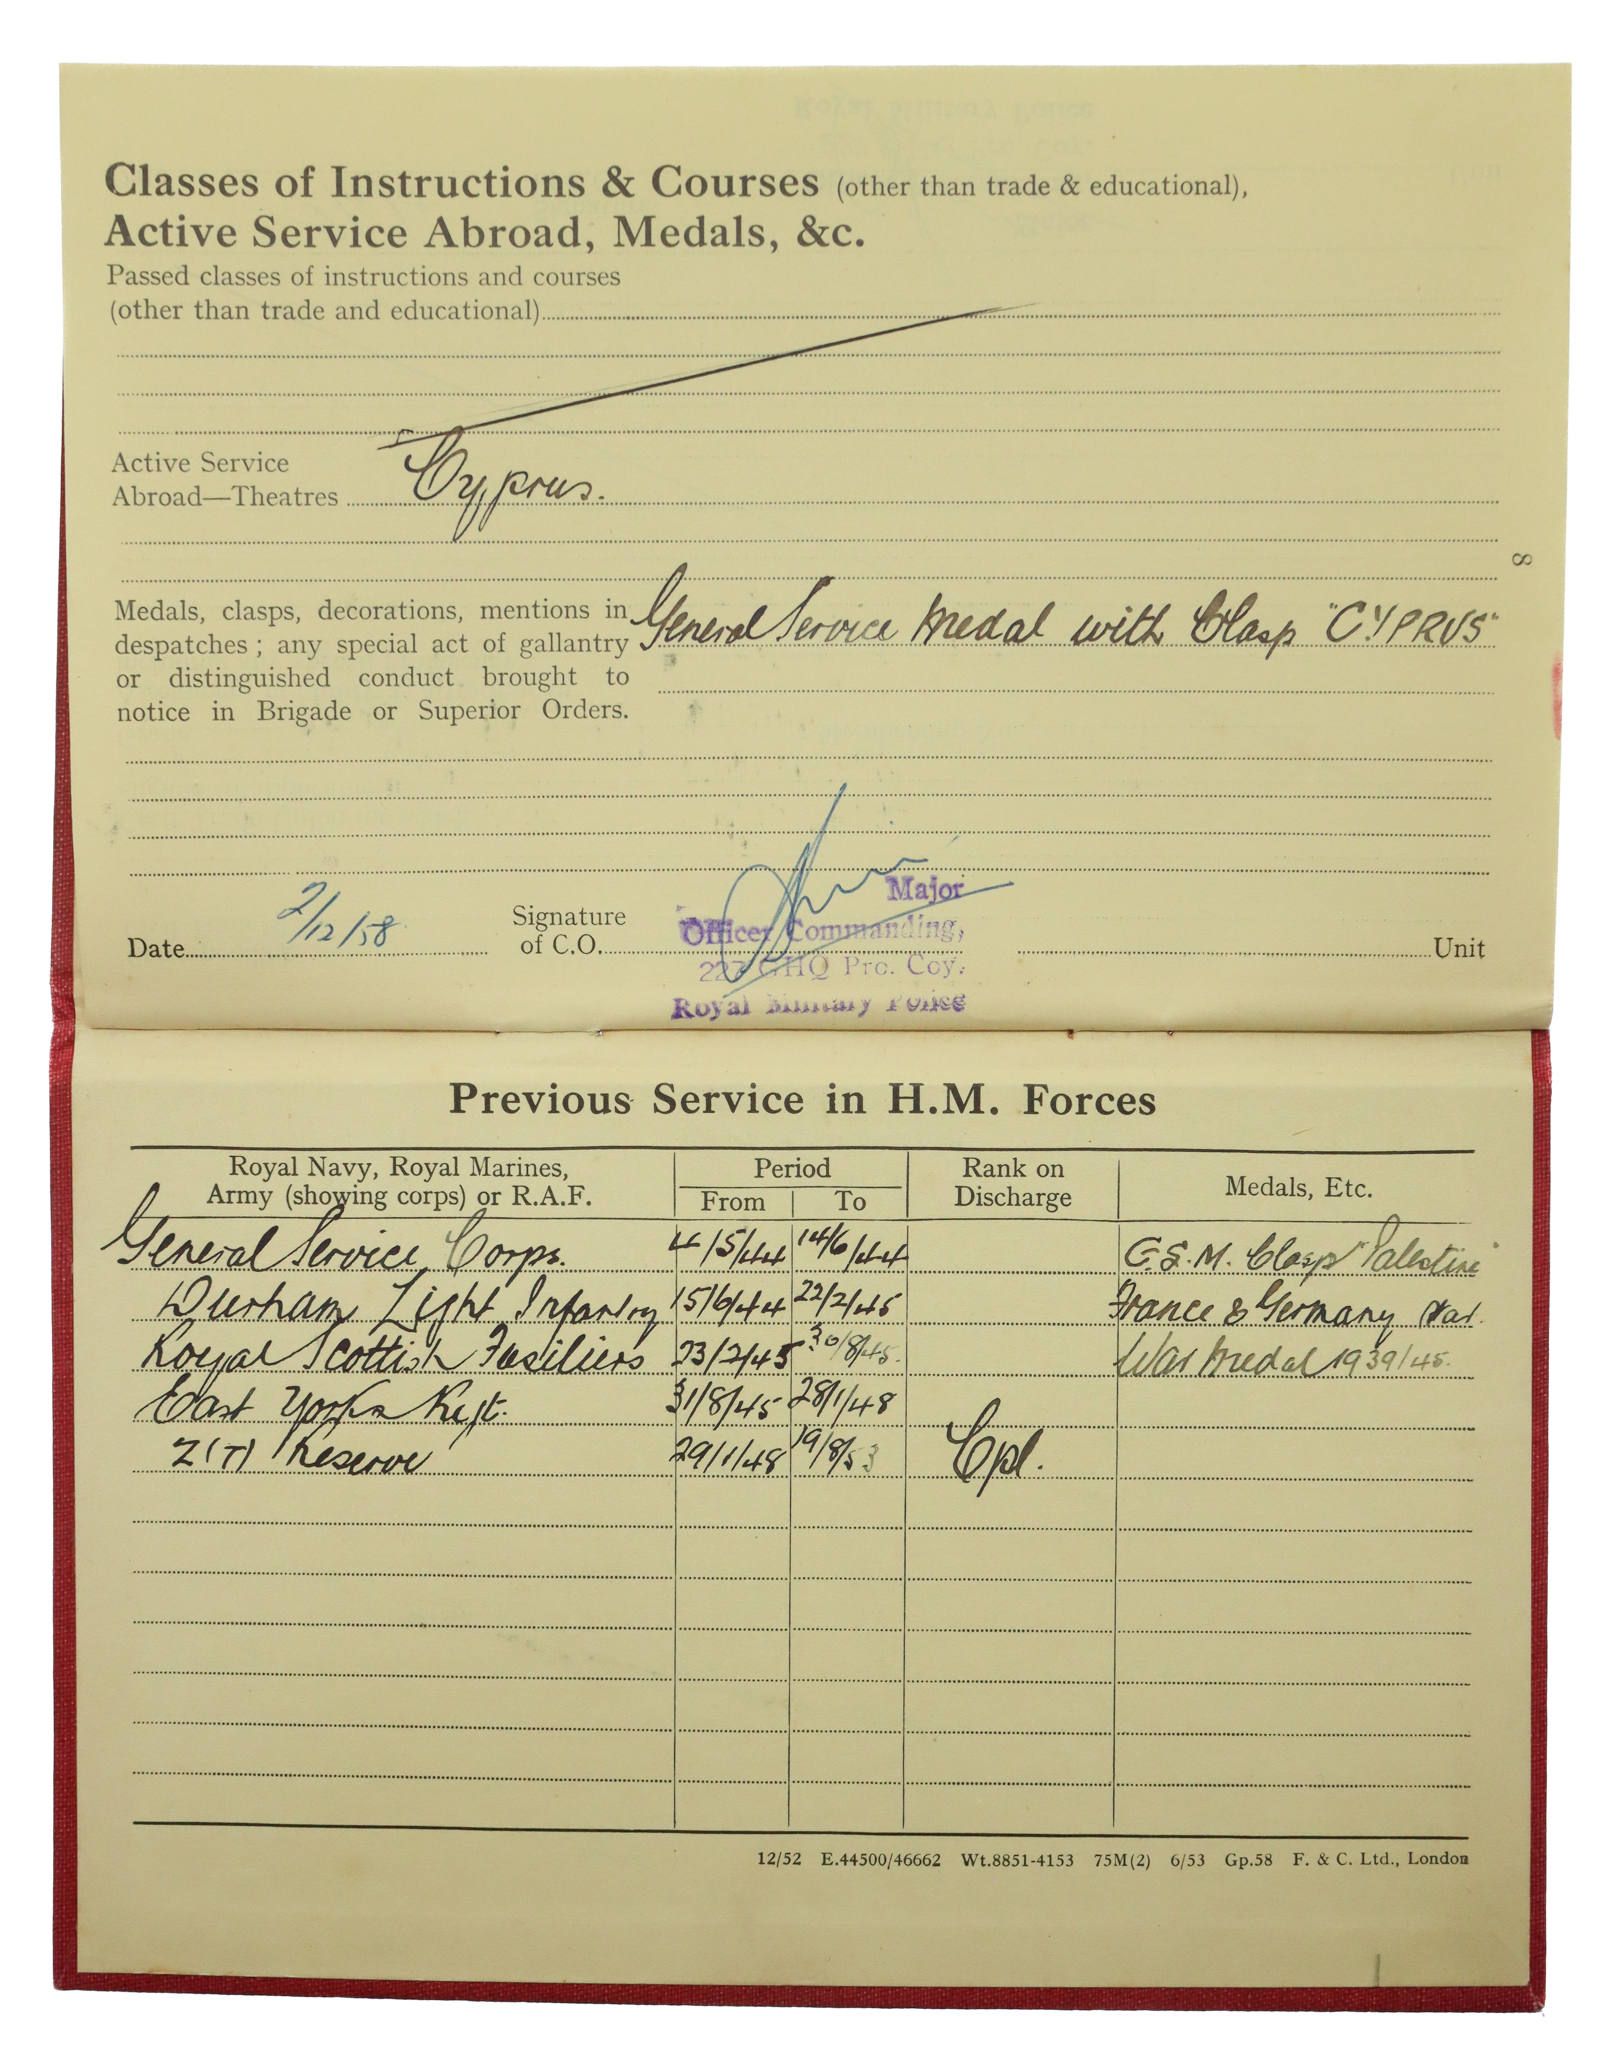 Classes of Instructions & Courses (other than trade & educational),
Active Service Abroad, Medals, &c.
Passed classes of instructions and courses
(other than trade and educational)
Active Service
Abroad—Theatres Cyprus.
8
Medals, clasps, decorations, mentions in General Service Medal with Clasp "CYPRUS"
despatches; any special act of gallantry
or distinguished conduct brought to
notice in Brigade or Superior Orders.
Major
Date 2/12/58 Signature of C.O. Officer Commanding, Unit
227 GHQ Pro. Coy.
Royal Military Police
Previous Service in H.M. Forces
Royal Navy, Royal Marines, Army (showing corps) or R.A.F. Period From To Rank on Discharge Medals, Etc.
General Service Corps. 4/5/44 14/6/44 G.S.M. Clasp "Palestine"
Durham Light Infantry 15/6/44 22/2/45 France & Germany Star.
Royal Scottish Fusiliers 23/2/45 30/8/45. War Medal 1939/45.
East Yorks Regt. 31/8/45 28/1/48
Z(T) Reserve 29/1/48 19/8/53 Cpl.
12/52 E.44500/46662 Wt.8851-4153 75M(2) 6/53 Gp.58 F. & C. Ltd., London